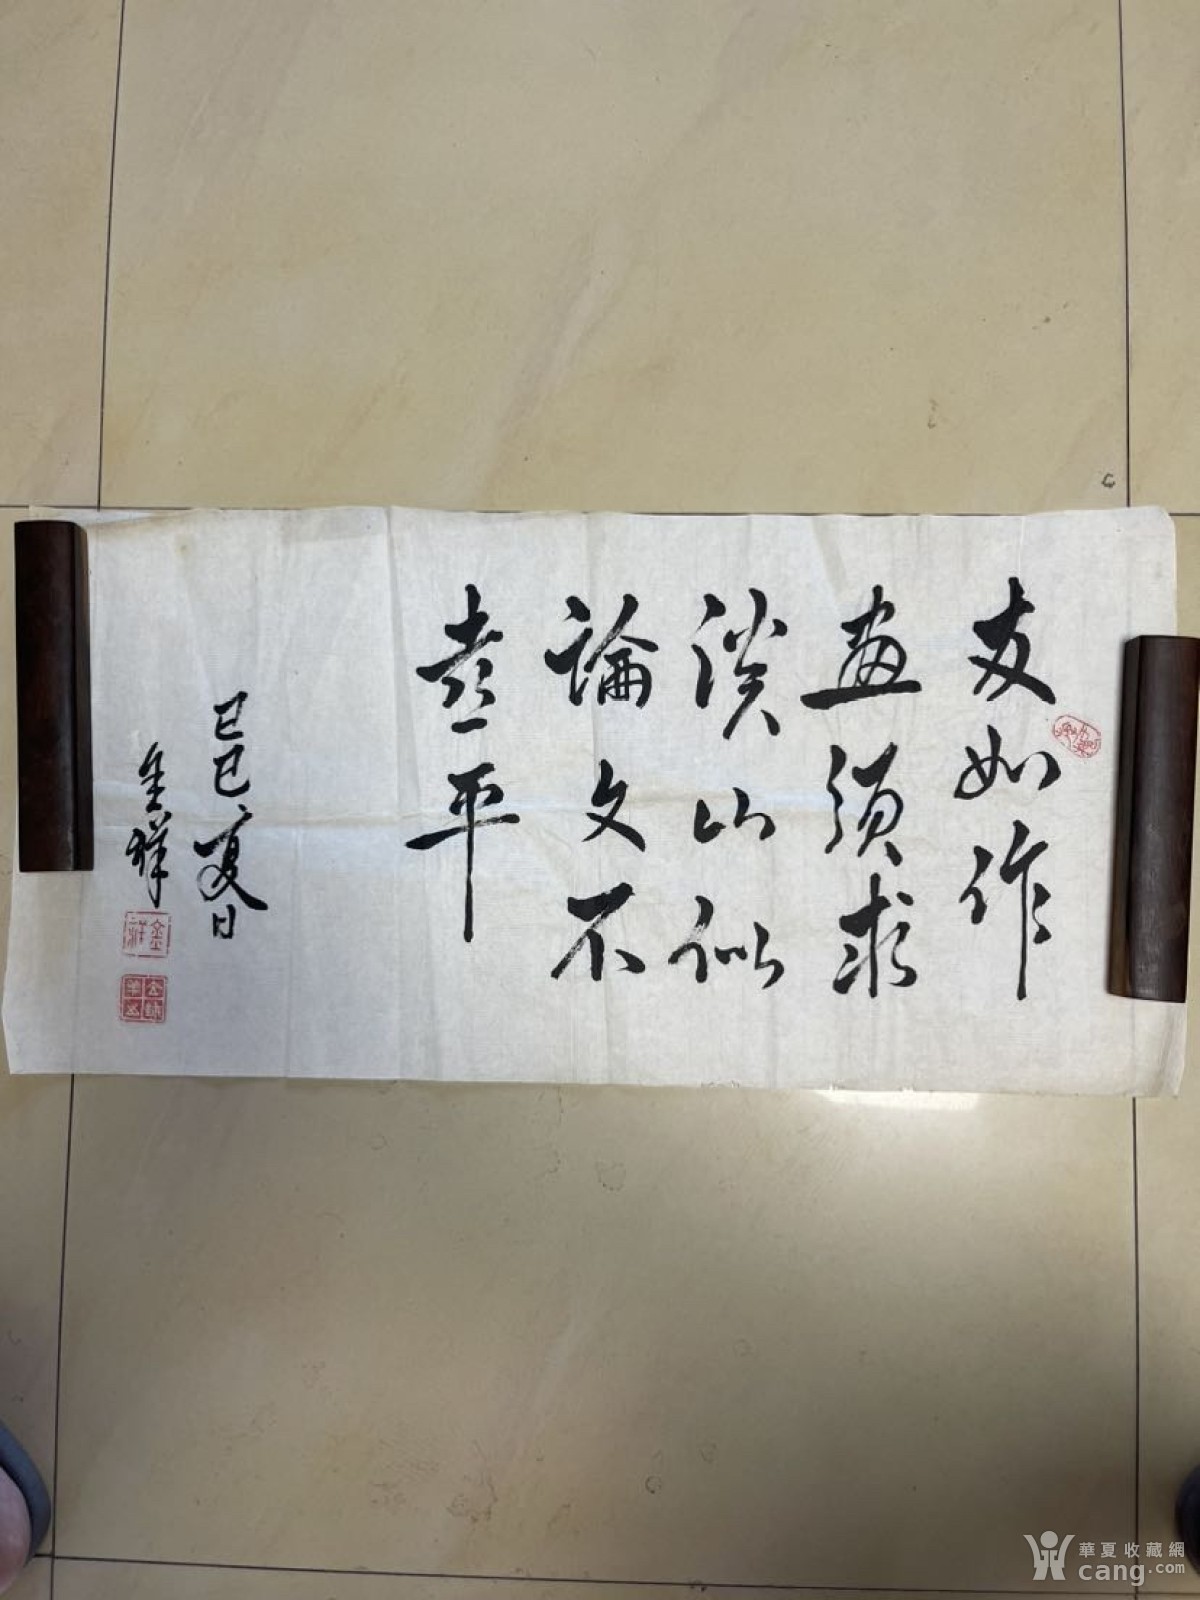 友如作
画須求
淡山似
論文不
喜平
己巳夏日
金祥
金祥
華夏收藏網
cang.com